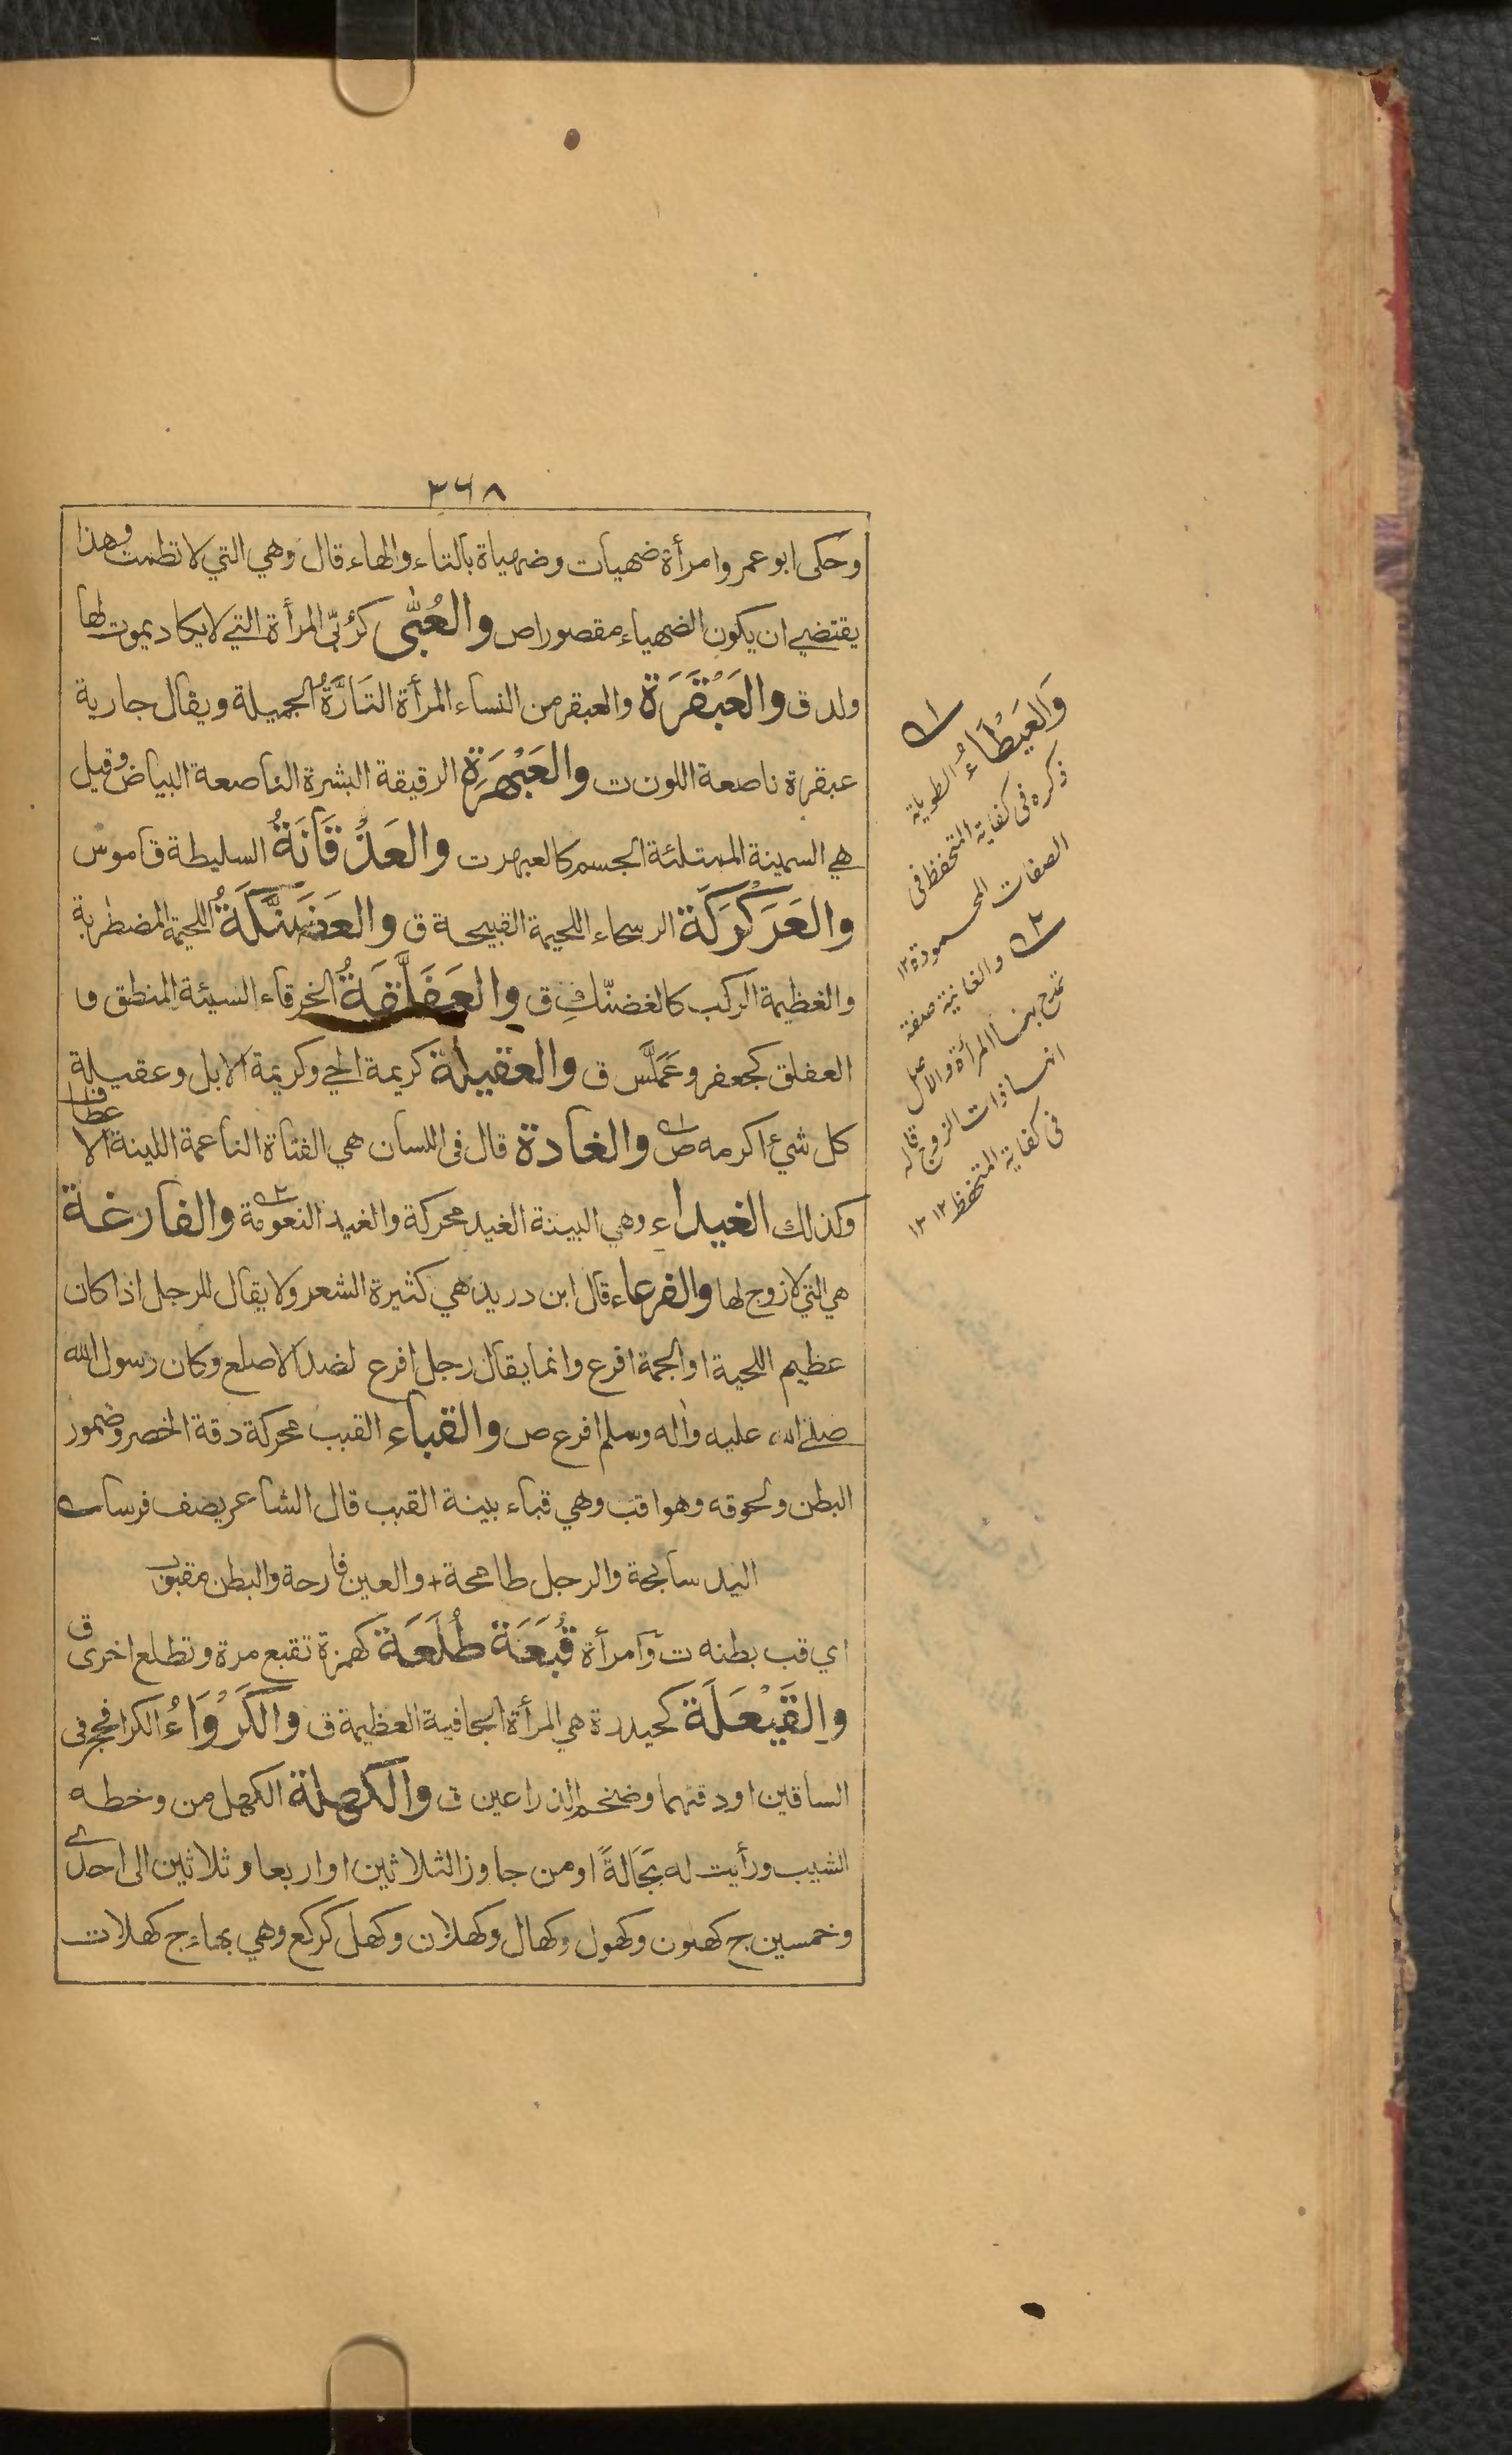 ٣٦٨
وحكى ابو عمرو امرأة ضهيات وضهياة بالتاء والهاء قال وهي التي لا تطمث وهذا
يقتضي ان يكون الضهياء مقصورا ص والعُبَّى كرُبّى المرأة التي لا يكاد يموت لها
ولد ق والعَبْقَرَة والعبقر من النساء المرأة التَارَّةُ الجميلة ويقال جارية
عبقرة ناصعة اللون ت والعَبْهَرَة الرقيقة البشرة الناصعة البياض وقيل
هي السمينة الممتلئة الجسم كالعبهر ت والعَذْقَانَةُ السليطة قاموس
والعَرَكْرَكَة الرسحاء اللحيمة القبيحة ق والعَضَنَّكَةُ اللحيمة المضطربة
والعظيمة الركب كالغضنّكِ ق والعَفَلَّقَةُ الخرقاء السيئة المنطق و
العفلق كجعفر وعَمَلَّس ق والعقيلة كريمة الحي وكريمة الابل وعقيلة
كل شيء اكرمه ص والغادة قال في اللسان هي الفتاة الناعمة اللينة الاعطاف
وكذلك الغيداء وهي البينة الغيد محركة والغيد النعومة والفارغة
هي التي لا زوج لها والفرعاء قال ابن دريد هي كثيرة الشعر ولا يقال للرجل اذا كان
عظيم اللحية او الجمة افرع وانما يقال رجل افرع لضد الاصلع وكان رسول الله
صلى الله عليه وآله وسلم افرع ص والقباء القبب محركة دقة الخصر وضمور
البطن ولحوقه وهو اقب وهي قباء بينة القبب قال الشاعر يصف فرسا
اليد سابحة والرجل طامحة + والعين قارحة والبطن مقبوب
اي قب بطنه ت وامرأة قُبَعَة طُلَعَة كهمزة تقبع مرة وتطلع اخرى ق
والقَيْعَلَة كحيدرة هي المرأة الجافية العظيمة ق والكَرْوَاءُ الكرا فحج في
الساقين او دقتهما وضخم الذراعين ق والكهلة الكهل من وخطه
الشيب ورأيت له بَجَالةً او من جاوز الثلاثين او اربعا وثلاثين الى احدى
وخمسين ج كهلون وكهول وكهال وكهلان وكهل كركع وهي بهاء ج كهلات
وَالعَيْطَاءُ الطويلة
ذكره في كفاية المتحفظ في
الصفات المحمودة ١٢
والغانية صفة
تمدح بها المرأة والاصل
انها ذات الزوج قاله
في كفاية المتحفظ ١٢ ١٢